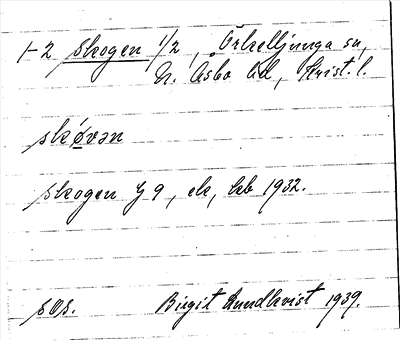 1-2 Skogen 1/2, Örkelljunga sn,
N. Åsbo hd, Krist. l.
skóvən
Skogen G 9, ek, kb 1932.
sOs. Birgit Lundkvist 1939.